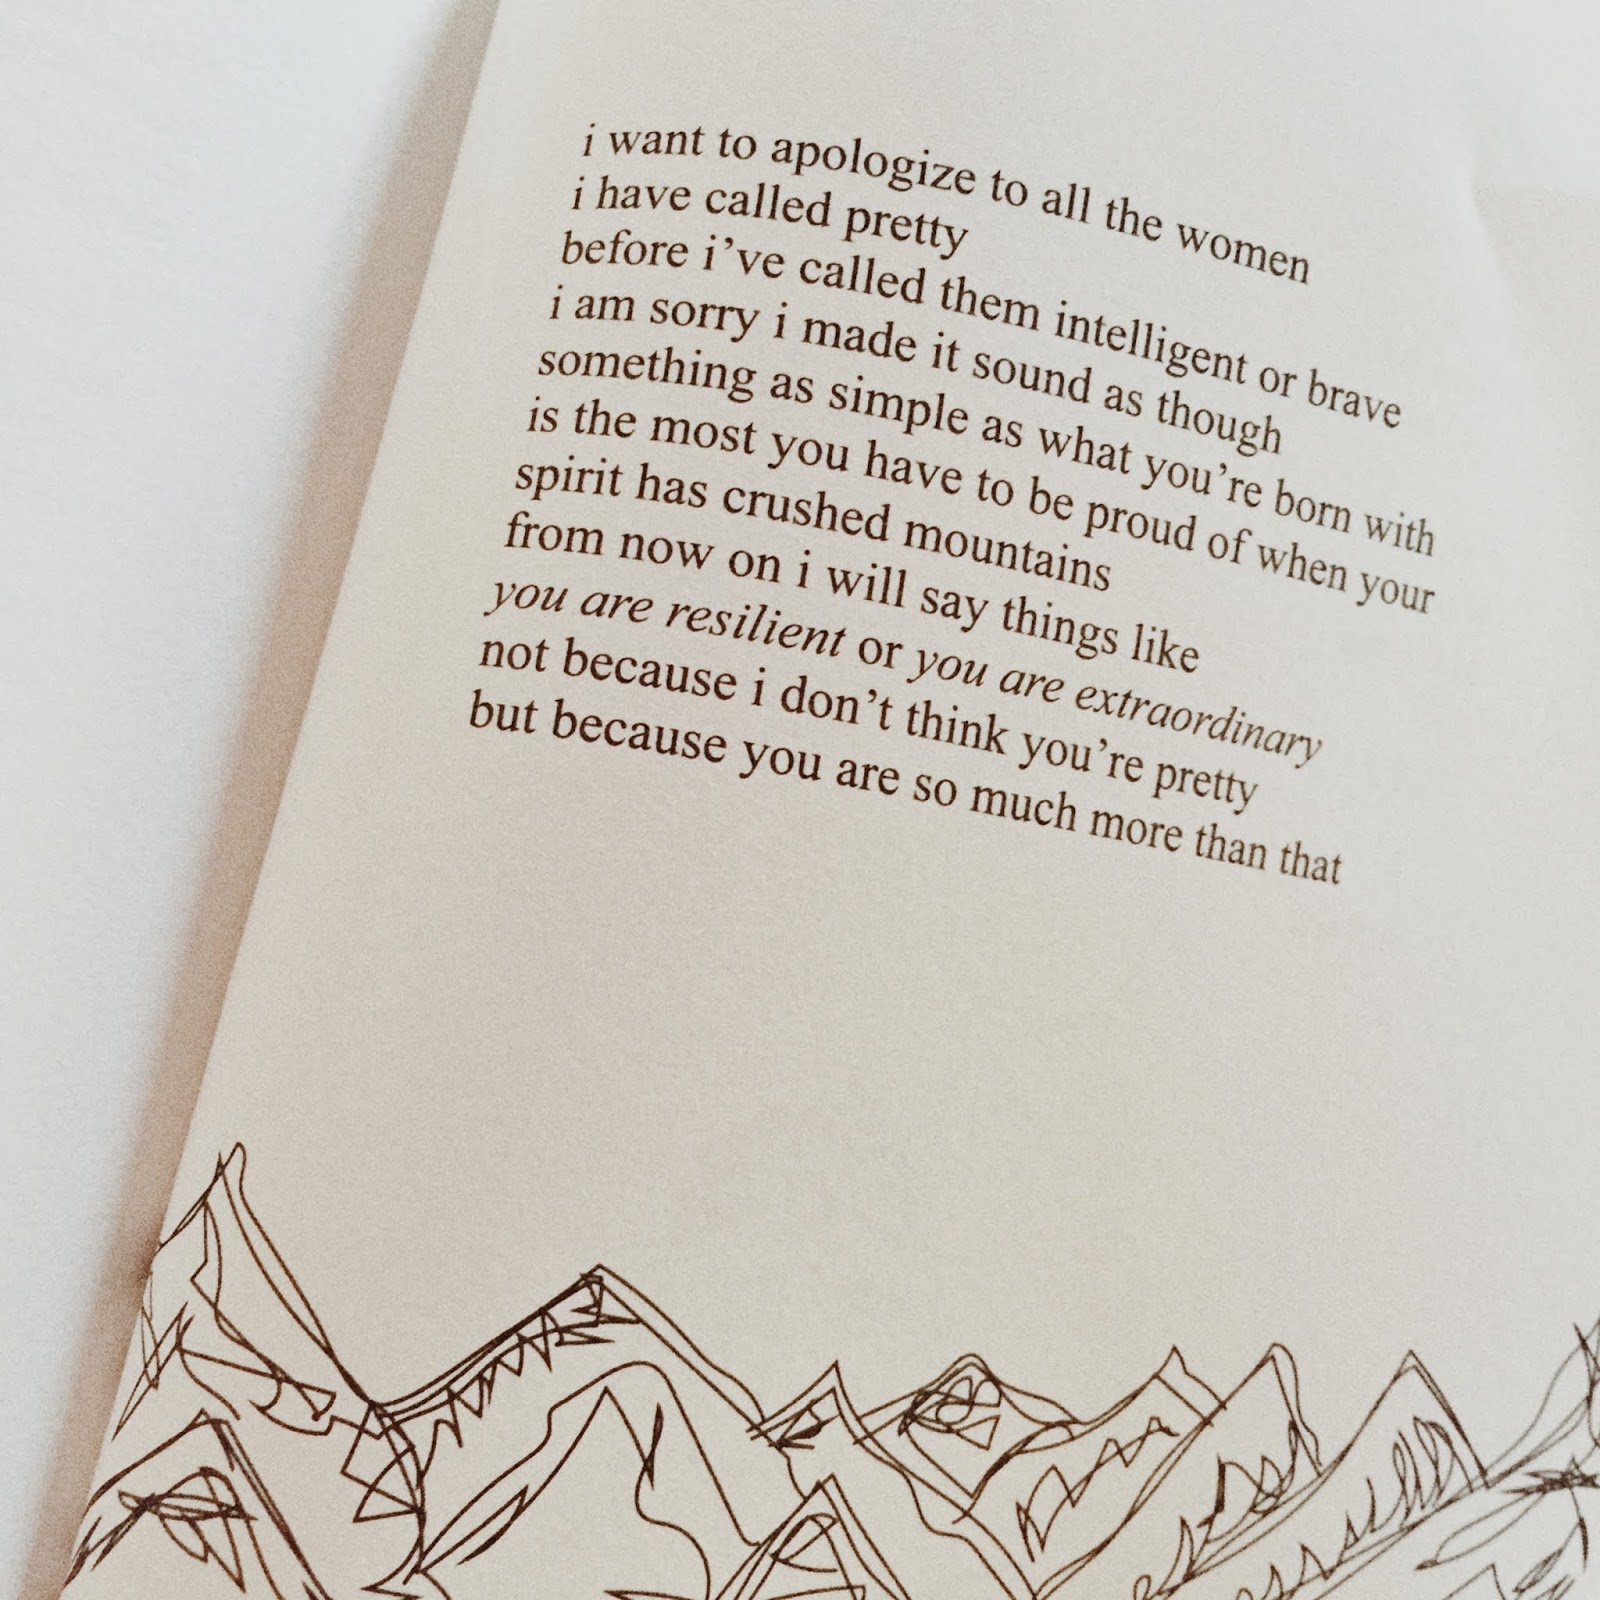 i want to apologize to all the women
i have called pretty
before i've called them intelligent or brave
i am sorry i made it sound as though
something as simple as what you're born with
is the most you have to be proud of when your
spirit has crushed mountains
from now on i will say things like
you are resilient or you are extraordinary
not because i don't think you're pretty
but because you are so much more than that